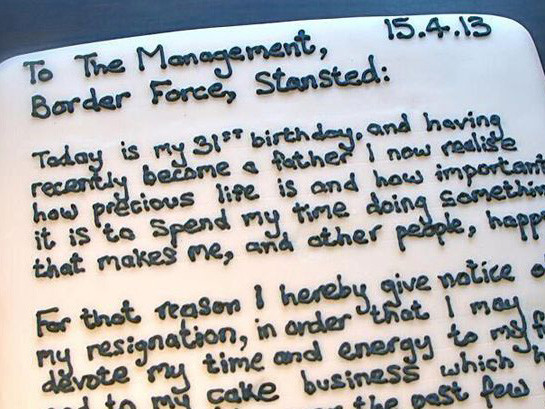 15.4.13
To The Management,
Border Force, Stansted:
Today is my 31ST birthday, and having
recently become a father I now realise
how precious life is and how important
it is to spend my time doing something
that makes me, and other people, happ
For that reason I hereby give notice o
my resignation, in order that I may
devote my time and energy to my f
and to my cake business which h
over the past few